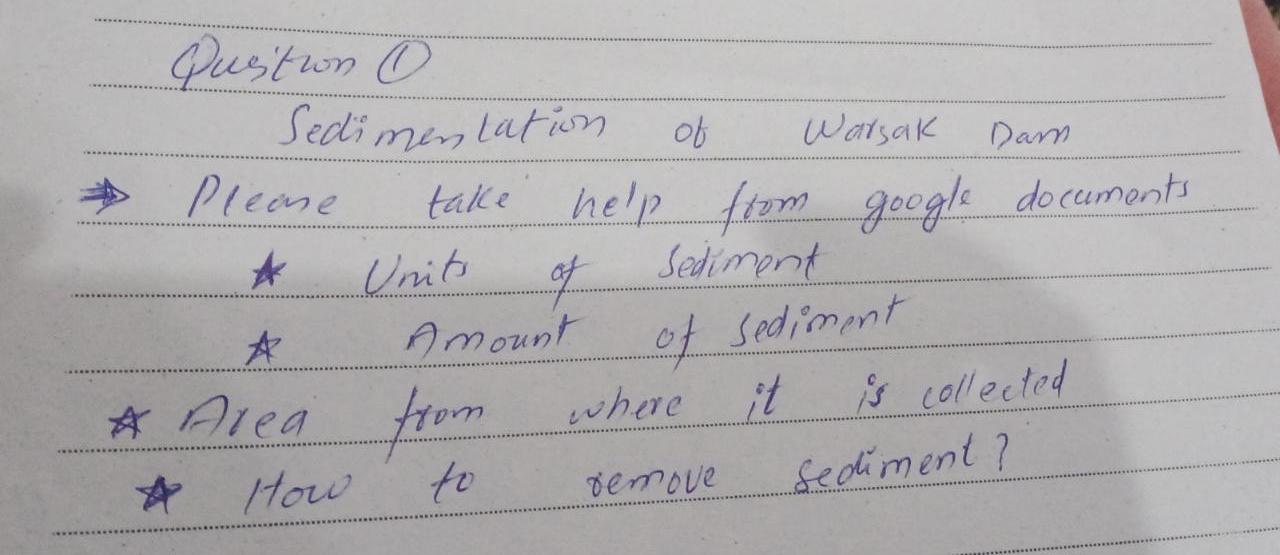 Question ①
Sedimentation of Warsak Dam
⇒ Please take help from google documents
★ Units of Sediment
★ Amount of sediment
★ Area from where it is collected
★ How to remove sediment?